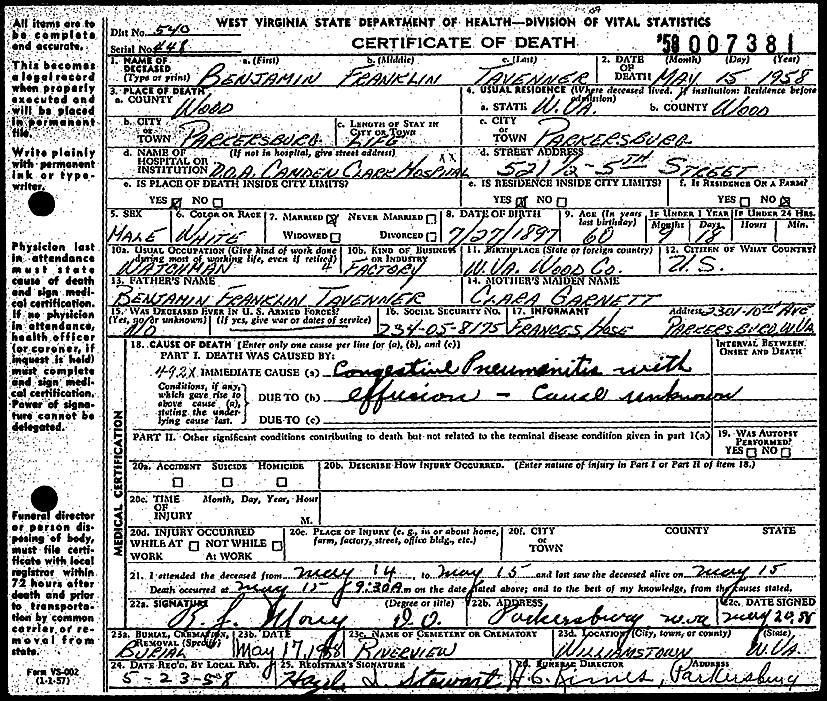 WEST VIRGINIA STATE DEPARTMENT OF HEALTH—DIVISION OF VITAL STATISTICS
Dist No. 540
Serial No. 448
CERTIFICATE OF DEATH
'58 007381
1. NAME OF DECEASED (Type or print) a. (First) b. (Middle) c. (Last)
BENJAMIN FRANKLIN TAVENNER
2. DATE OF DEATH (Month) (Day) (Year)
MAY 15 1958
3. PLACE OF DEATH
a. COUNTY WOOD
4. USUAL RESIDENCE (Where deceased lived. If institution: Residence before admission)
a. STATE W.VA. b. COUNTY WOOD
b. CITY OR TOWN PARKERSBURG
c. LENGTH OF STAY IN CITY OR TOWN LIFE
c. CITY OR TOWN PARKERSBURG
d. NAME OF HOSPITAL OR INSTITUTION (If not in hospital, give street address)
D.O.A. CAMDEN CLARK HOSPITAL
d. STREET ADDRESS
521 1/2 - 5TH STREET
e. IS PLACE OF DEATH INSIDE CITY LIMITS?
YES NO
e. IS RESIDENCE INSIDE CITY LIMITS?
YES NO
f. IS RESIDENCE ON A FARM?
YES NO
5. SEX
MALE
6. COLOR OR RACE
WHITE
7. MARRIED NEVER MARRIED
WIDOWED DIVORCED
8. DATE OF BIRTH
7/27/1897
9. AGE (In years last birthday)
60
IF UNDER 1 YEAR
Months Days
9 18
IF UNDER 24 HRS.
Hours Min.
10a. USUAL OCCUPATION (Give kind of work done during most of working life, even if retired)
WATCHMAN
10b. KIND OF BUSINESS OR INDUSTRY
FACTORY
11. BIRTHPLACE (State or foreign country)
W.VA. WOOD CO.
12. CITIZEN OF WHAT COUNTRY?
U.S.
13. FATHER'S NAME
BENJAMIN FRANKLIN TAVENNER
14. MOTHER'S MAIDEN NAME
CLARA BARNETT
15. WAS DECEASED EVER IN U. S. ARMED FORCES?
(Yes, no, or unknown) (If yes, give war or dates of service)
NO
16. SOCIAL SECURITY NO.
234-05-8175
17. INFORMANT
FRANCES HOSE
Address 2301-10TH AVE
PARKERSBURG, W.VA.
18. CAUSE OF DEATH [Enter only one cause per line for (a), (b), and (c)]
INTERVAL BETWEEN ONSET AND DEATH
PART I. DEATH WAS CAUSED BY:
492X IMMEDIATE CAUSE (a) Congestive Pneumonitis with
Conditions, if any, which gave rise to above cause (a), stating the underlying cause last.
DUE TO (b) effusion - Causal unknown
DUE TO (c)
PART II. Other significant conditions contributing to death but not related to the terminal disease condition given in part 1(a)
19. WAS AUTOPSY PERFORMED?
YES NO
MEDICAL CERTIFICATION
20a. ACCIDENT SUICIDE HOMICIDE
20b. DESCRIBE HOW INJURY OCCURRED. (Enter nature of injury in Part I or Part II of item 18.)
20c. TIME OF INJURY Month, Day, Year, Hour
M.
20d. INJURY OCCURRED
WHILE AT WORK NOT WHILE AT WORK
20e. PLACE OF INJURY (e. g., in or about home, farm, factory, street, office bldg., etc.)
20f. CITY OR TOWN COUNTY STATE
21. I attended the deceased from may 14, to may 15 and last saw the deceased alive on may 15
Death occurred at may 15 9:30A m on the date stated above; and to the best of my knowledge, from the causes stated.
22a. SIGNATURE (Degree or title)
D.O.
22b. ADDRESS
Parkersburg W.Va
22c. DATE SIGNED
may 20, 58
23a. BURIAL, CREMATION, REMOVAL (Specify)
BURIAL
23b. DATE
MAY 17, 1958
23c. NAME OF CEMETERY OR CREMATORY
RIVERVIEW
23d. LOCATION (City, town, or county) (State)
WILLIAMSTOWN W.VA.
24. DATE REC'D. BY LOCAL REG.
5-23-58
25. REGISTRAR'S SIGNATURE
Stewart
FUNERAL DIRECTOR ADDRESS
Parkersburg
All items are to
be complete
and accurate.
This becomes
a legal record
when properly
executed and
will be placed
in permanent
file.
Write plainly
with permanent
ink or type-
writer.
Physician last
in attendance
must state
cause of death
and sign medi-
cal certification.
If no physician
in attendance,
health officer
(or coroner, if
inquest is held)
must complete
and sign medi-
cal certification.
Power of signa-
ture cannot be
delegated.
Funeral director
or person dis-
posing of body,
must file certi-
ficate with local
registrar within
72 hours after
death and prior
to transporta-
tion by common
carrier or re-
moval from
state.
Form VS-002
(1-1-57)